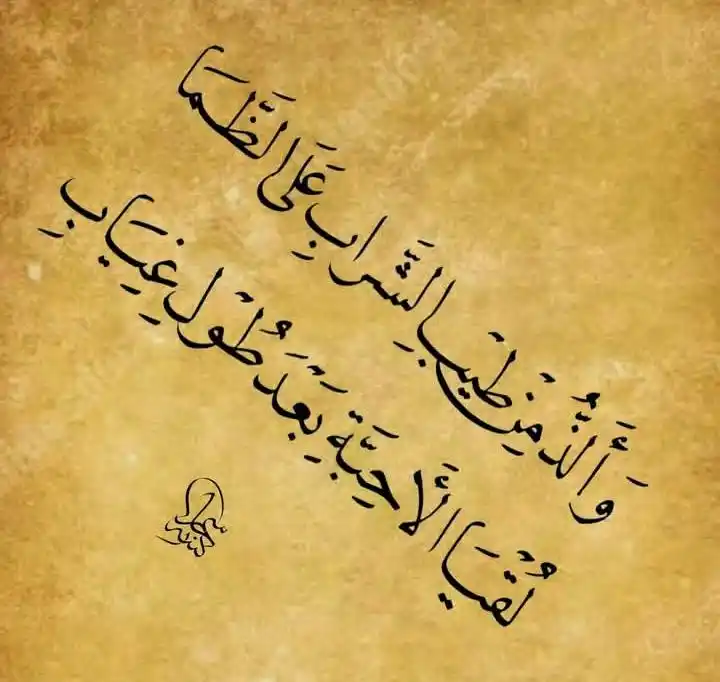 وَأَلَذُّ مِنْ طِيْبِ الشَّرابِ عَلَى الظَّمَا
لُقْيَا الأَحِبَّةِ بَعْدَ طُوْلِ غِيَابِ